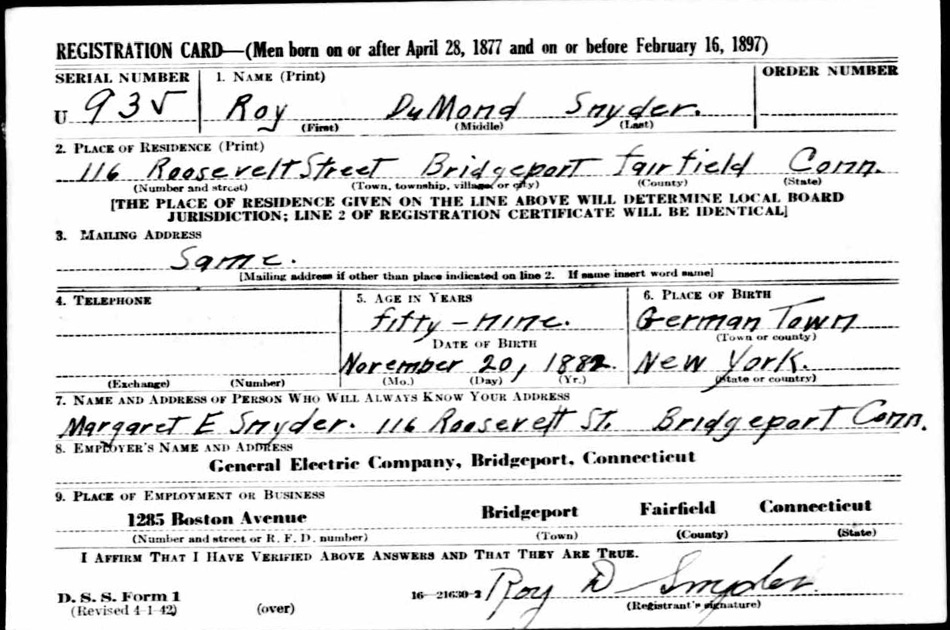 REGISTRATION CARD—(Men born on or after April 28, 1877 and on or before February 16, 1897)
SERIAL NUMBER 1. NAME (Print) ORDER NUMBER
U 935 Roy DuMond Snyder.
(First) (Middle) (Last)
2. PLACE OF RESIDENCE (Print)
116 Roosevelt Street Bridgeport Fairfield Conn.
(Number and street) (Town, township, village, or city) (County) (State)
[THE PLACE OF RESIDENCE GIVEN ON THE LINE ABOVE WILL DETERMINE LOCAL BOARD
JURISDICTION; LINE 2 OF REGISTRATION CERTIFICATE WILL BE IDENTICAL]
3. MAILING ADDRESS
Same.
[Mailing address if other than place indicated on line 2. If same insert word same]
4. TELEPHONE 5. AGE IN YEARS 6. PLACE OF BIRTH
fifty-nine. German Town
DATE OF BIRTH (Town or county)
November 20, 1882. New York.
(Exchange) (Number) (Mo.) (Day) (Yr.) (State or country)
7. NAME AND ADDRESS OF PERSON WHO WILL ALWAYS KNOW YOUR ADDRESS
Margaret E Snyder. 116 Roosevelt St. Bridgeport Conn.
8. EMPLOYER'S NAME AND ADDRESS
General Electric Company, Bridgeport, Connecticut
9. PLACE OF EMPLOYMENT OR BUSINESS
1285 Boston Avenue Bridgeport Fairfield Connecticut
(Number and street or R. F. D. number) (Town) (County) (State)
I AFFIRM THAT I HAVE VERIFIED ABOVE ANSWERS AND THAT THEY ARE TRUE.
Roy D Snyder.
D. S. S. Form 1 16—21630-2 (Registrant's signature)
(Revised 4-1-42) (over)